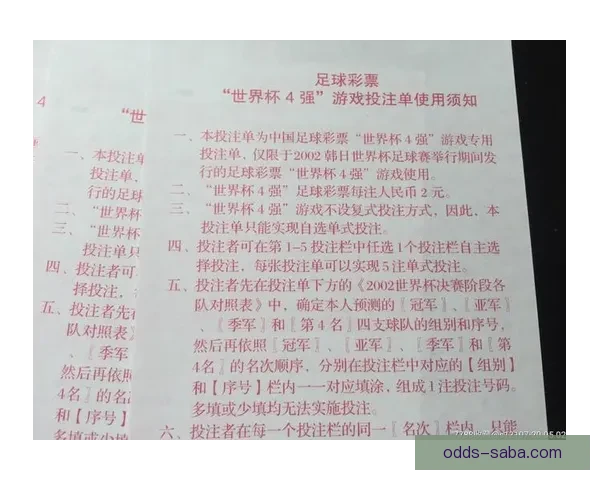 足球彩票
“世界杯 4 强”游戏投注单使用须知
一、本投注单为中国足球彩票“世界杯 4 强”游戏专用
投注单，仅限于2002 韩日世界杯足球赛举行期间发
行的足球彩票“世界杯 4 强”游戏使用。
二、“世界杯 4 强”足球彩票每注人民币 2 元。
三、“世界杯 4 强”游戏不设复式投注方式，因此，本
投注单只能实现自选单式投注。
四、投注者可在第 1–5 投注栏中任选 1个投注栏自主选
择投注，每张投注单可以实现 5 注单式投注。
五、投注者先在投注单下方的《2002世界杯决赛阶段各
队对照表》中，确定本人预测的〖冠军〗、〖亚军〗
、〖季军〗和〖第 4 名〗四支球队的组别和序号，
然后再依照〖冠军〗、〖亚军〗、〖季军〗和〖第
4名〗的名次顺序，分别在投注栏中对应的【组别】
和【序号】栏内一一对应填涂，组成1注投注号码。
多填或少填均无法实施投注。
六、投注者在每一个投注栏的同一〖名次〗栏内，只能
4
“世
一、本投注单
投注单，
行的足球
二、“世界杯
三、“世界杯
投注单只
四、投注者可
择投注，
五、投注者先在
队对照表》
、〖季军
然后再依照
4名〗的名
和【序号】
多填或少填
odds-saba.com